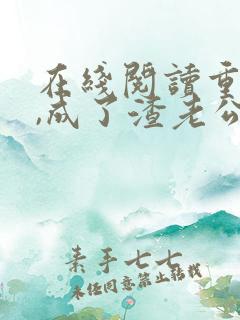 在线阅读重
,成了渣老公
素手七七
未经同意禁止转载